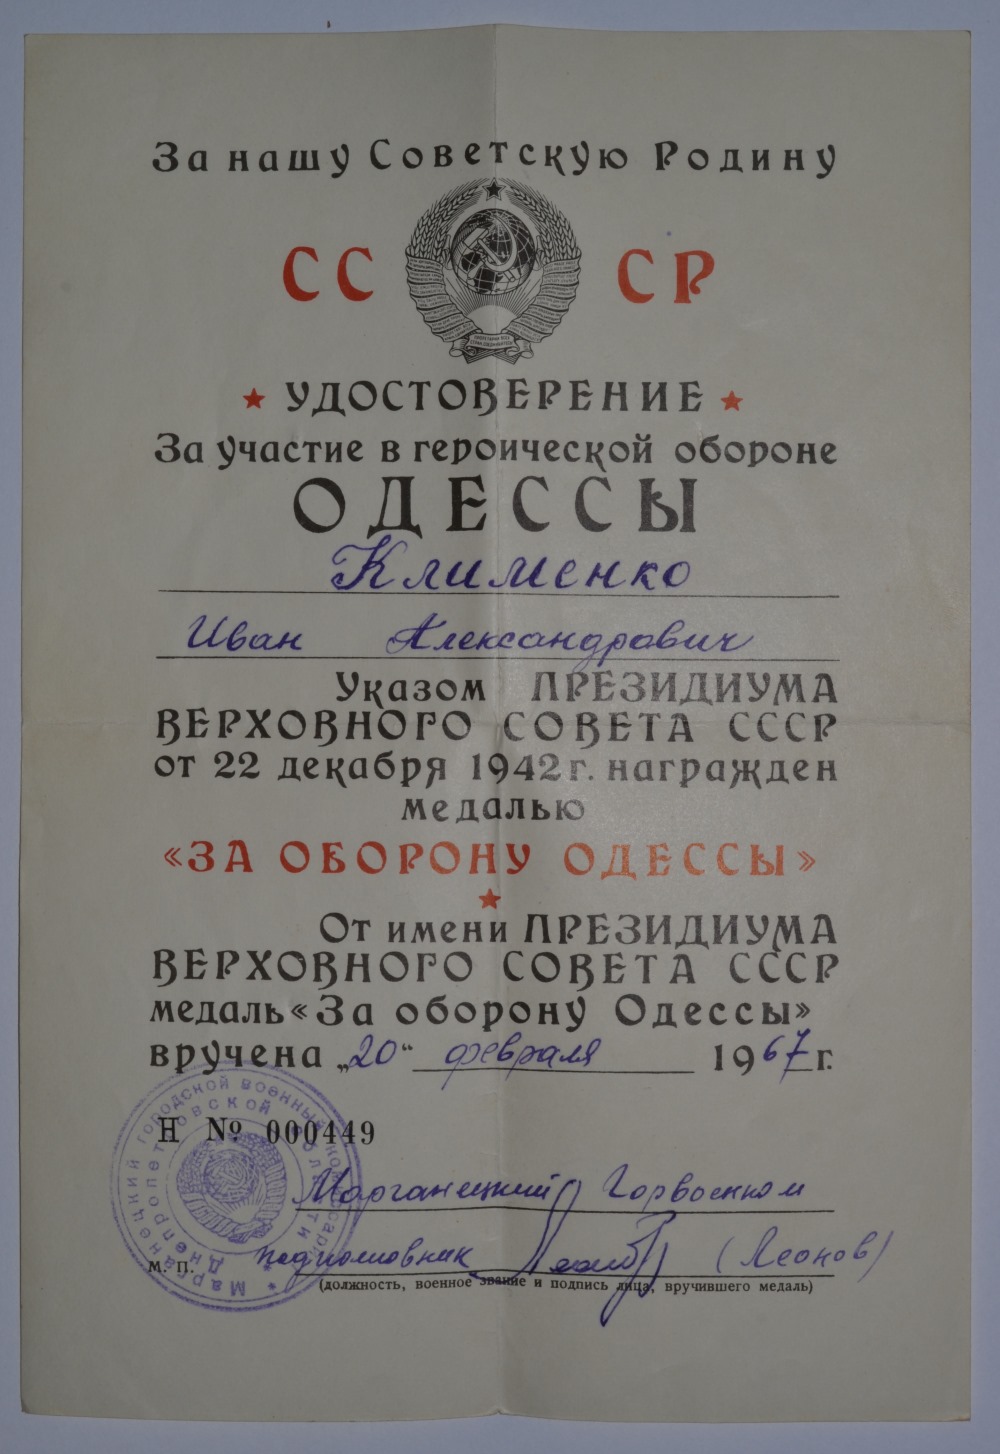 За нашу Советскую Родину
СС СР
УДОСТОВЕРЕНИЕ
За участие в героической обороне
ОДЕССЫ
Клименко
Иван Александрович
Указом ПРЕЗИДИУМА
ВЕРХОВНОГО СОВЕТА СССР
от 22 декабря 1942 г. награжден
медалью
«ЗА ОБОРОНУ ОДЕССЫ»
От имени ПРЕЗИДИУМА
ВЕРХОВНОГО СОВЕТА СССР
медаль «За оборону Одессы»
вручена „20“ февраля 1967 г.
Н № 000449
Марганецкий городской военный комиссариат
Днепропетровской области
Марганецкий Горвоенком
подполковник (Леонов)
М. П.
(должность, военное звание и подпись лица, вручившего медаль)